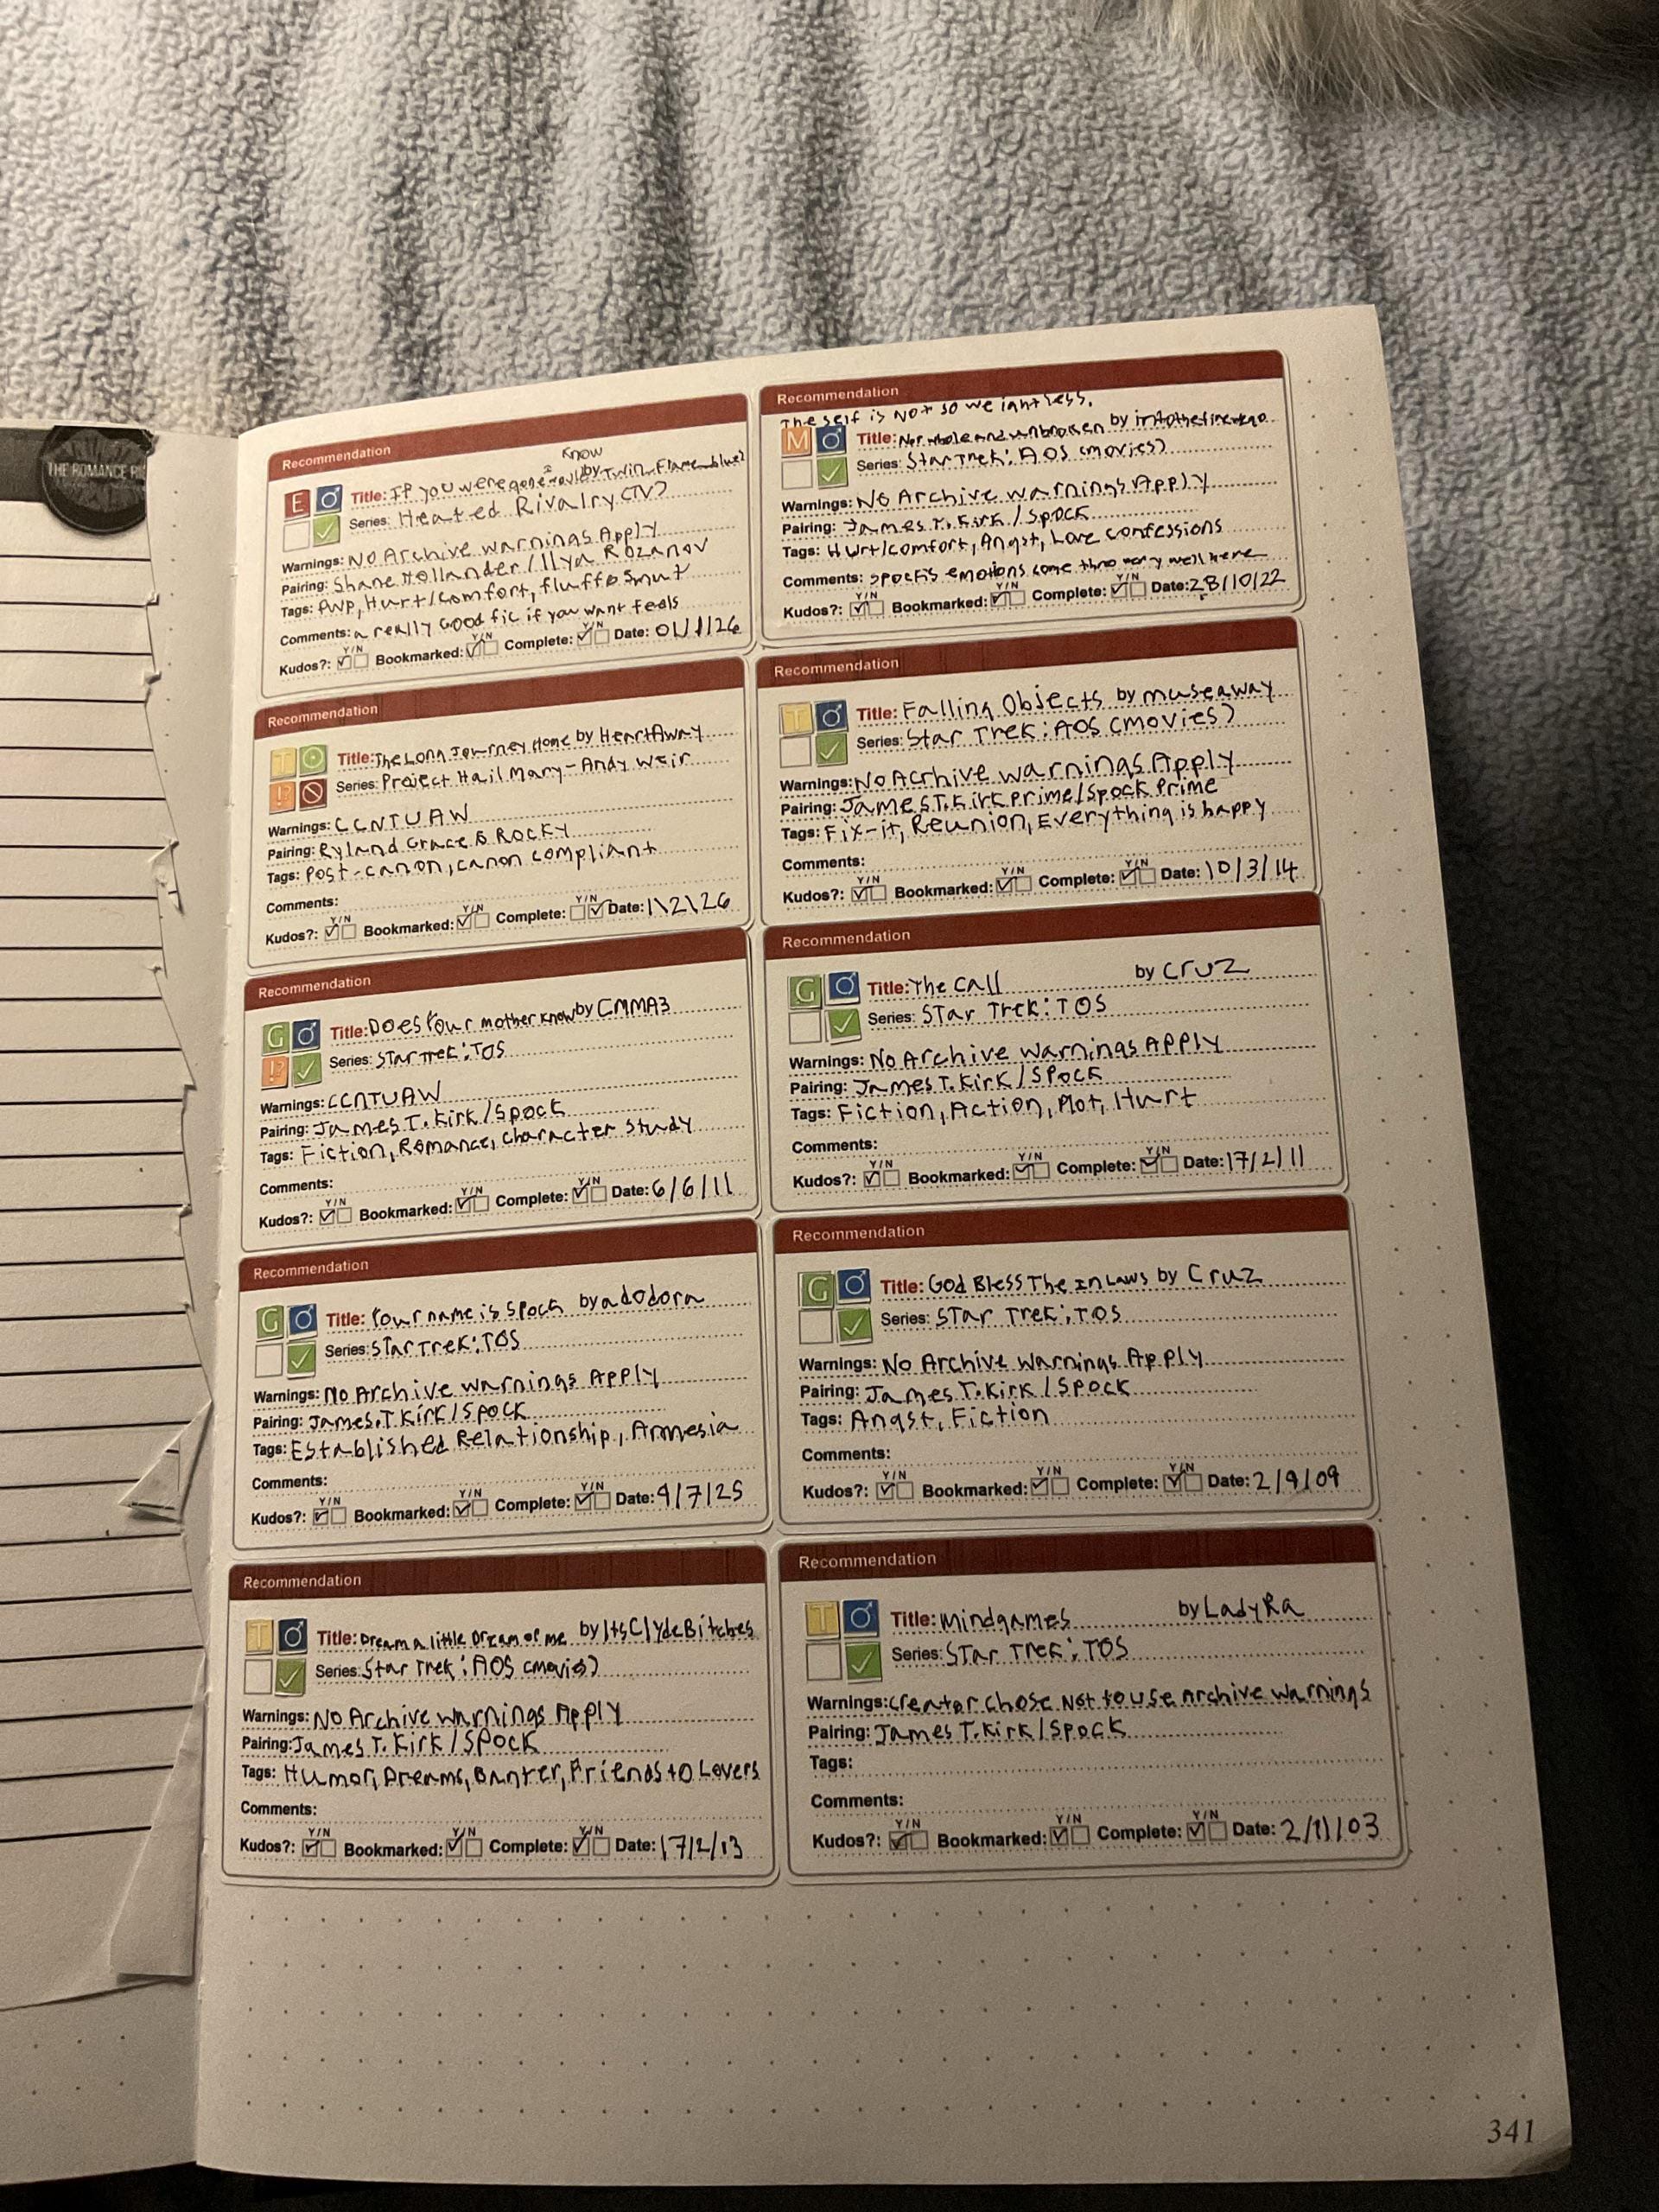 THE ROMANCE RE
Recommendation
E
I Know
Title: If you were gone by Twin_Flame_blue2
Series: Heated Rivalry (TV)
Warnings: No Archive warnings Apply
Pairing: Shane Hollander / Ilya Rozanov
Tags: Pwp, Hurt/comfort, fluff & smut
Comments: a really Good fic if you want feels
Y/N Y/N Y/N
Kudos?: Bookmarked: Complete: Date: 01/1/26
Recommendation
The self is Not so weightless,
M
Title: Nor whole and unbroken by
Series: Star Trek: AOS (movies)
Warnings: No Archive warnings Apply
Pairing: James T. Kirk / Spock
Tags: Hurt/comfort, Angst, Love confessions
Comments: Spock's emotions come thro very well here
Y/N Y/N Y/N
Kudos?: Bookmarked: Complete: Date: 28/10/22
Recommendation
T
Title: The Long Journey Home by HeartAway
!? Series: Project Hail Mary - Andy Weir
Warnings: CCNTUAW
Pairing: Ryland Grace & Rocky
Tags: Post-canon, canon compliant
Comments:
Y/N Y/N Y/N
Kudos?: Bookmarked: Complete: Date: 1\2\26
Recommendation
T
Title: Falling Objects by museaway
Series: Star Trek: AOS (movies)
Warnings: No Acrhive warnings Apply
Pairing: James T. Kirk Prime / Spock Prime
Tags: Fix-it, Reunion, Everything is happy
Comments:
Y/N Y/N Y/N
Kudos?: Bookmarked: Complete: Date: 10/3/14
Recommendation
G
Title: Does Your mother know by CMMA3
!? Series: Star Trek: TOS
Warnings: CCNTUAW
Pairing: James T. Kirk / Spock
Tags: Fiction, Romance, character study
Comments:
Y/N Y/N Y/N
Kudos?: Bookmarked: Complete: Date: 6/6/11
Recommendation
G
Title: The Call by Cruz
Series: Star Trek: TOS
Warnings: No Archive warnings Apply
Pairing: James T. Kirk / Spock
Tags: Fiction, Action, Plot, Hurt
Comments:
Y/N Y/N Y/N
Kudos?: Bookmarked: Complete: Date: 17/2/11
Recommendation
G
Title: Your name is Spock by adodora
Series: Star Trek: TOS
Warnings: No Archive warnings Apply
Pairing: James.T Kirk / Spock
Tags: Established Relationship, Amnesia
Comments:
Y/N Y/N Y/N
Kudos?: Bookmarked: Complete: Date: 9/7/25
Recommendation
G
Title: God Bless The In Laws by Cruz
Series: Star Trek: TOS
Warnings: No Archive warnings Apply
Pairing: James T. Kirk / Spock
Tags: Angst, Fiction
Comments:
Y/N Y/N Y/N
Kudos?: Bookmarked: Complete: Date: 2/9/09
Recommendation
T
Title: Dream a little Dream of me by ItsClydeBitches
Series: Star Trek: AOS (movies)
Warnings: No Archive warnings Apply
Pairing: James T. Kirk / Spock
Tags: Humor, Dreams, Banter, Friends to Lovers
Comments:
Y/N Y/N Y/N
Kudos?: Bookmarked: Complete: Date: 17/2/13
Recommendation
T
Title: Mindgames by LadyRa
Series: Star Trek: TOS
Warnings: Creator Chose Not to use Archive Warnings
Pairing: James T. Kirk / Spock
Tags:
Comments:
Y/N Y/N Y/N
Kudos?: Bookmarked: Complete: Date: 2/11/03
341